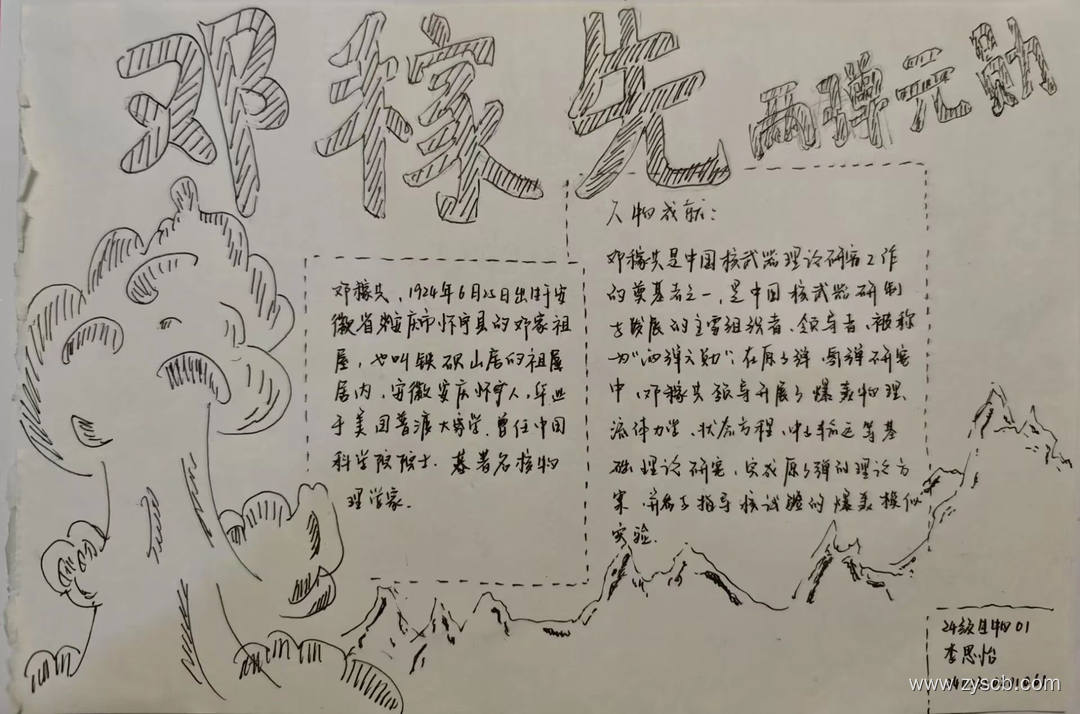 邓稼先
两弹元勋
邓稼先，1924年6月25日出生于安
徽省安庆市怀宁县的邓家祖
屋，也叫铁砚山房的祖屋
居内，安徽安庆怀宁人，毕业
于美国普渡大学，曾任中国
科学院院士．著名核物
理学家．
人物成就：
邓稼先是中国核武器理论研究工作
的奠基者之一，是中国核武器研制
与发展的主要组织者、领导者，被称
为“两弹元勋”；在原子弹，氢弹研究
中，邓稼先领导开展了爆轰物理、
流体力学、状态方程、中子输运等基
础理论研究，完成原子弹的理论方
案，并参与指导核试验的爆轰模似
实验．
24级 01
李思怡
www.zyscb.com